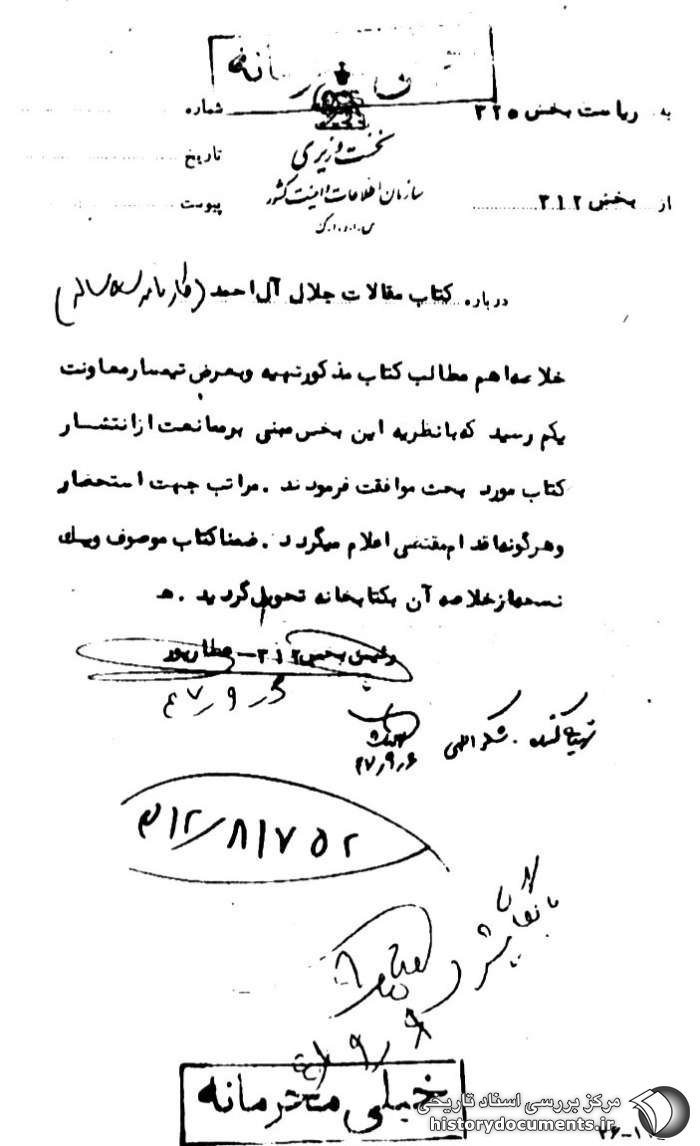 خیلی محرمانه
به ریاست بخش ۳۲۵
شماره
نخست وزیری
تاریخ
سازمان اطلاعات و امنیت کشور
از بخش ۳۱۲
پیوست
س.ا.و.ا.ک
درباره کتاب مقالات جلال آل احمد (کارنامه سه ساله)
خلاصه اهم مطالب کتاب مذکور تهیه و بعرض تیمسار معاونت
یکم رسید که با نظریه این بخش مبنی بر ممانعت از انتشار
کتاب مورد بحث موافقت فرمودند . مراتب جهت استحضار
و هرگونه اقدام مقتضی اعلام میگردد . ضمنا کتاب موصوف و یک
نسخه از خلاصه آن بکتابخانه تحویل گردید . ه
رئیس بخش ۳۱۲ - عطارپور
۴۷٫۹٫۶
تهیه کننده . شکرالهی
۴۷٫۹٫۶
۳۱۲/۸۱۷۵۲
خیلی محرمانه
مرکز بررسی اسناد تاریخی
historydocuments.ir